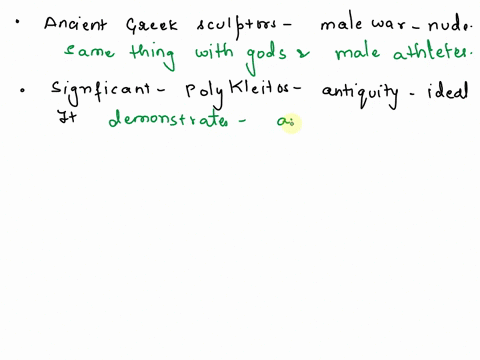 • Ancient Greek sculptors - male war - nude.
same thing with gods & male athletes.
• Signficant - Polykleitos - antiquity - ideal
It demonstrates - a